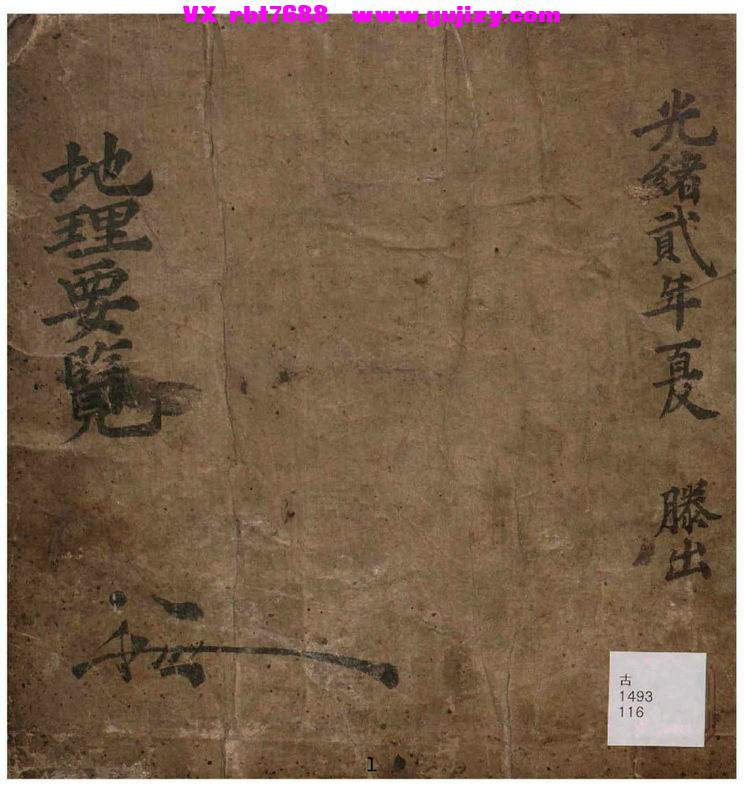 VX rbt7688 www.gujizy.com
光緒貳年夏 謄出
地理要覽
古
1493
116
1